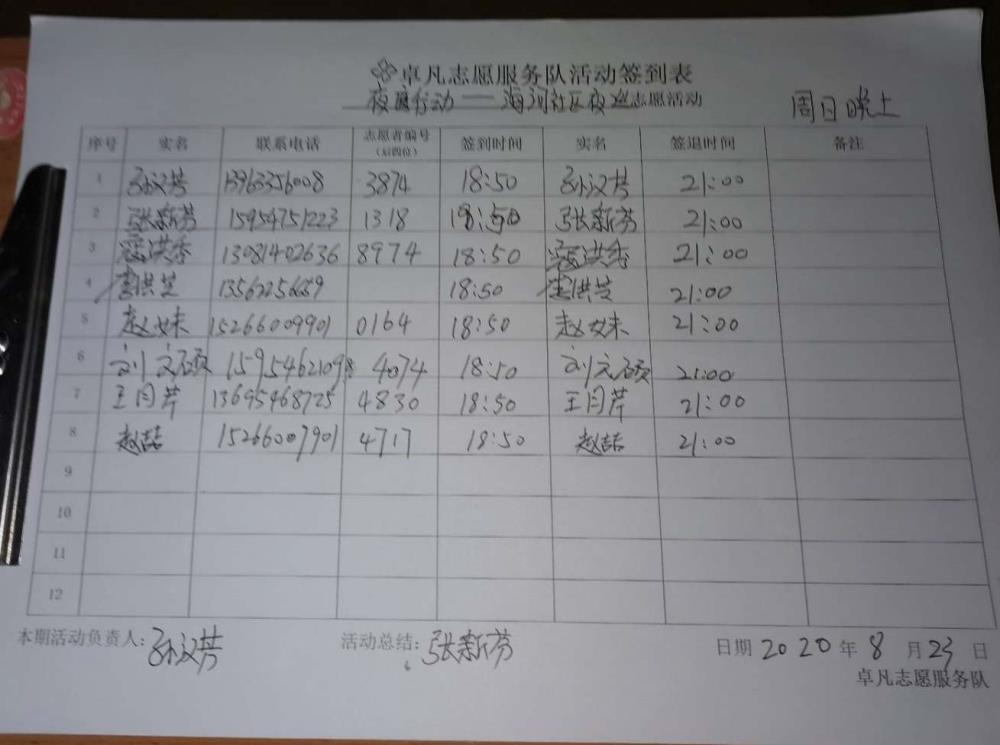 卓凡志愿服务队活动签到表
夜巡行动——海河社区夜巡志愿活动
周日晚上
序号 实名 联系电话 志愿者编号(后四位) 签到时间 实名 签退时间 备注
1 孙汉芳 13963356008 3874 18:50 孙汉芳 21:00
2 张新芬 15954751223 1318 18:50 张新芬 21:00
3 寇洪秀 13081402636 8974 18:50 寇洪秀 21:00
4 李洪芝 18:50 李洪芝 21:00
5 赵妹 15266009901 0164 18:50 赵妹 21:00
6 刘文硕 15954621098 4074 18:50 刘文硕 21:00
7 王月芹 13695468725 4830 18:50 王月芹 21:00
8 赵喆 15266007901 4717 18:50 赵喆 21:00
9
10
11
12
本期活动负责人:孙汉芳 活动总结:张新芬 日期2020年8月23日
卓凡志愿服务队